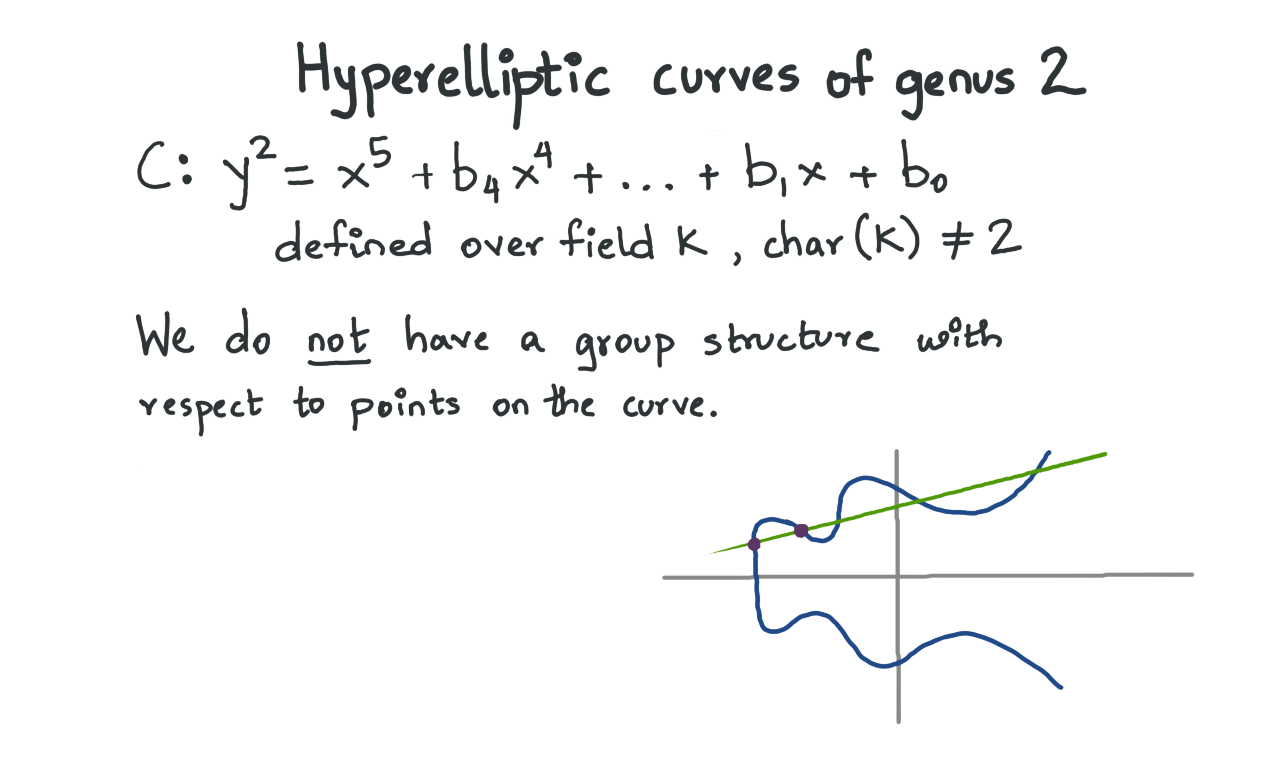 Hyperelliptic curves of genus 2
C: y² = x⁵ + b₄x⁴ + ... + b₁x + b₀
defined over field K, char(K) ≠ 2
We do not have a group structure with
respect to points on the curve.